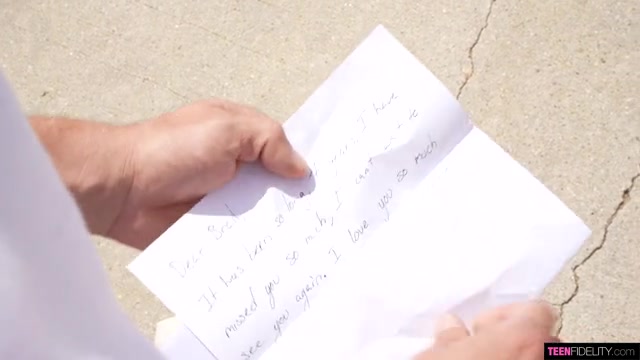 Dear Bret
It has been so long I have
missed you so much, I cant wait to
see you again. I love you so much
TEENFIDELITY.com